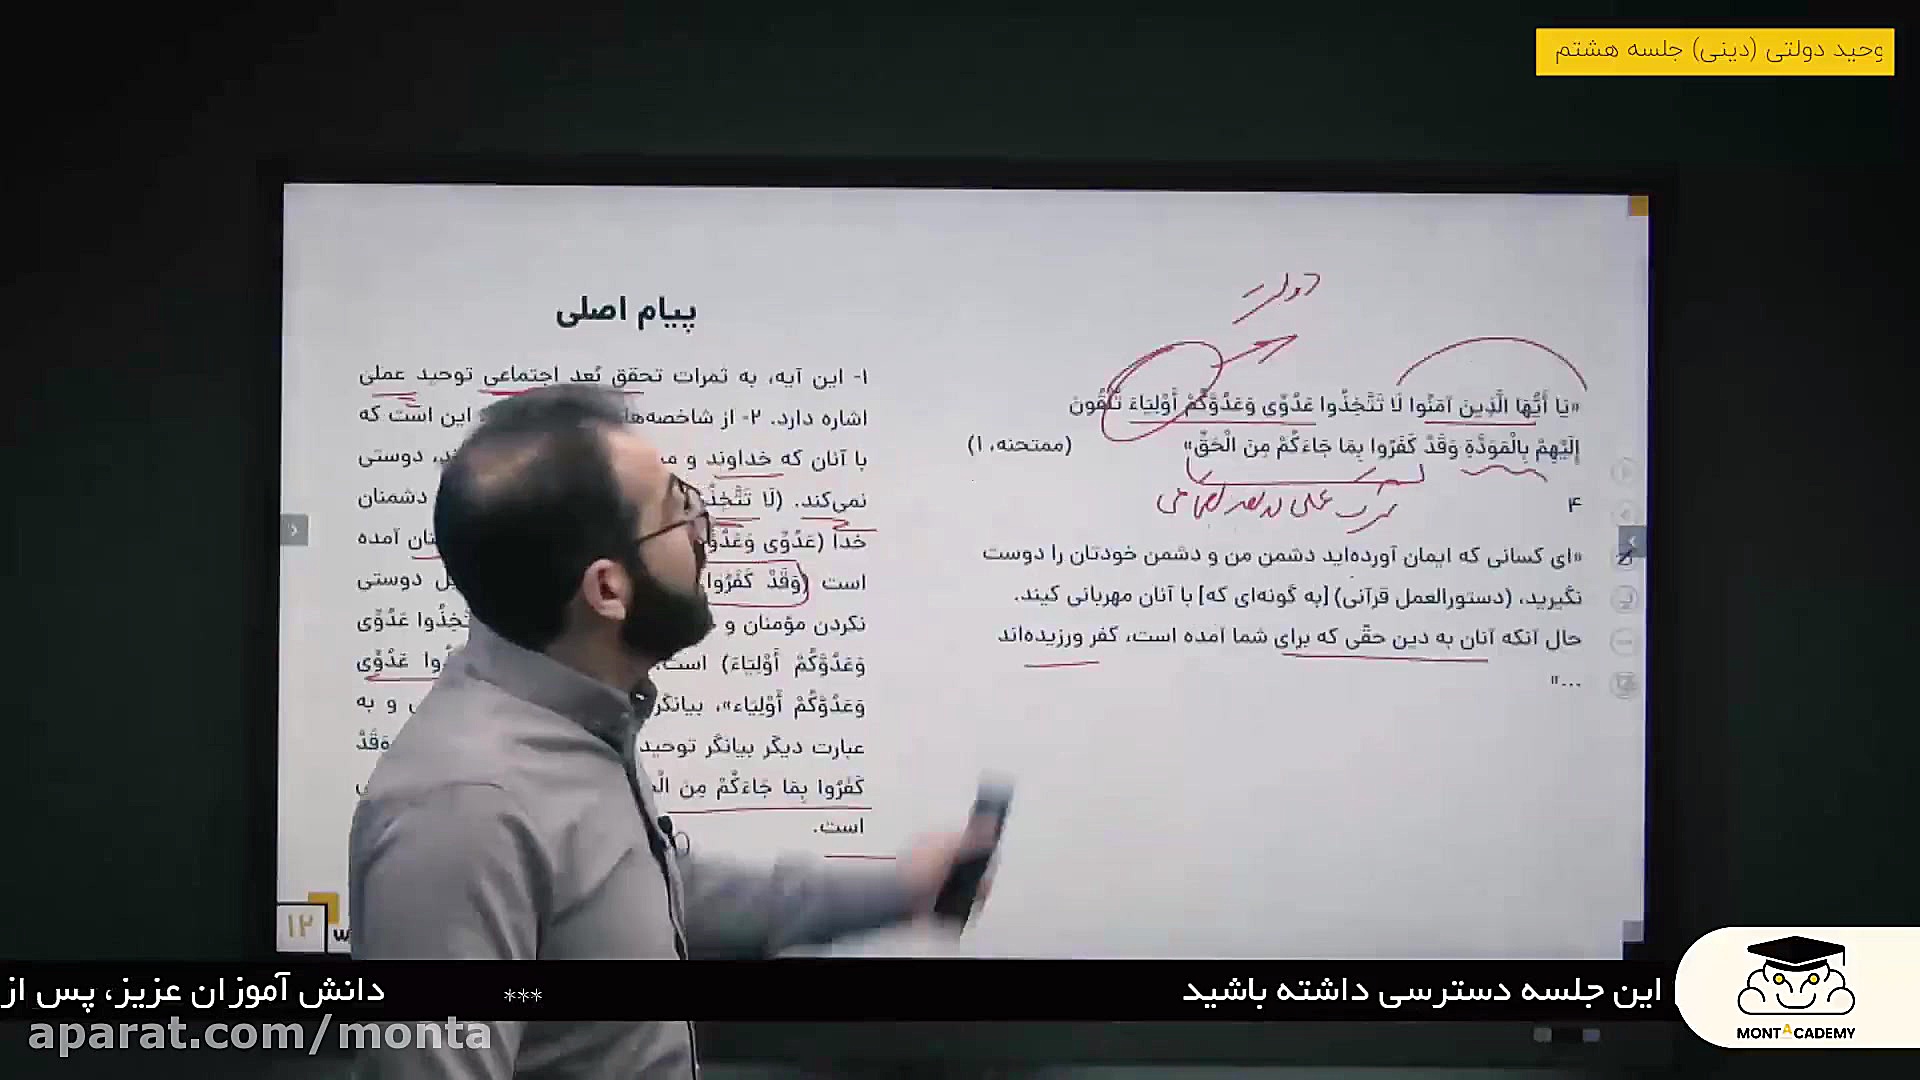 وحید دولتی (دینی) جلسه هشتم
«یَا أَیُّهَا الَّذِینَ آمَنُوا لَا تَتَّخِذُوا عَدُوِّی وَعَدُوَّکُمْ أَوْلِیَاءَ تُلْقُونَ
إِلَیْهِمْ بِالْمَوَدَّةِ وَقَدْ کَفَرُوا بِمَا جَاءَکُمْ مِنَ الْحَقِّ» (ممتحنه، ۱)
۴
«ای کسانی که ایمان آورده‌اید دشمن من و دشمن خودتان را دوست
نگیرید، (دستورالعمل قرآنی) [به گونه‌ای که] با آنان مهربانی کیند.
حال آنکه آنان به دین حقّی که برای شما آمده است، کفر ورزیده‌اند
...»
پیام اصلی
۱- این آیه، به ثمرات تحقق بُعد اجتماعی توحید عملی
اشاره دارد. ۲- از شاخصه‌ها این است که
با آنان که خداوند و دوستی
نمی‌کند. (لَا دشمنان
خدا (عَدُوِّی آمده
است (وَقَدْ کَفَرُوا دوستی
نکردن مؤمنان و عَدُوِّی
وَعَدُوَّکُمْ أَوْلِیَاءَ) است. عَدُوِّی
وَعَدُوَّکُمْ أَوْلِیَاء»، بیانگر و به
عبارت دیگر بیانگر توحید
کَفَرُوا بِمَا جَاءَکُمْ مِنَ
است.
۱۲
این جلسه دسترسی داشته باشید *** دانش آموزان عزیز، پس از
aparat.com/monta
MONTACADEMY